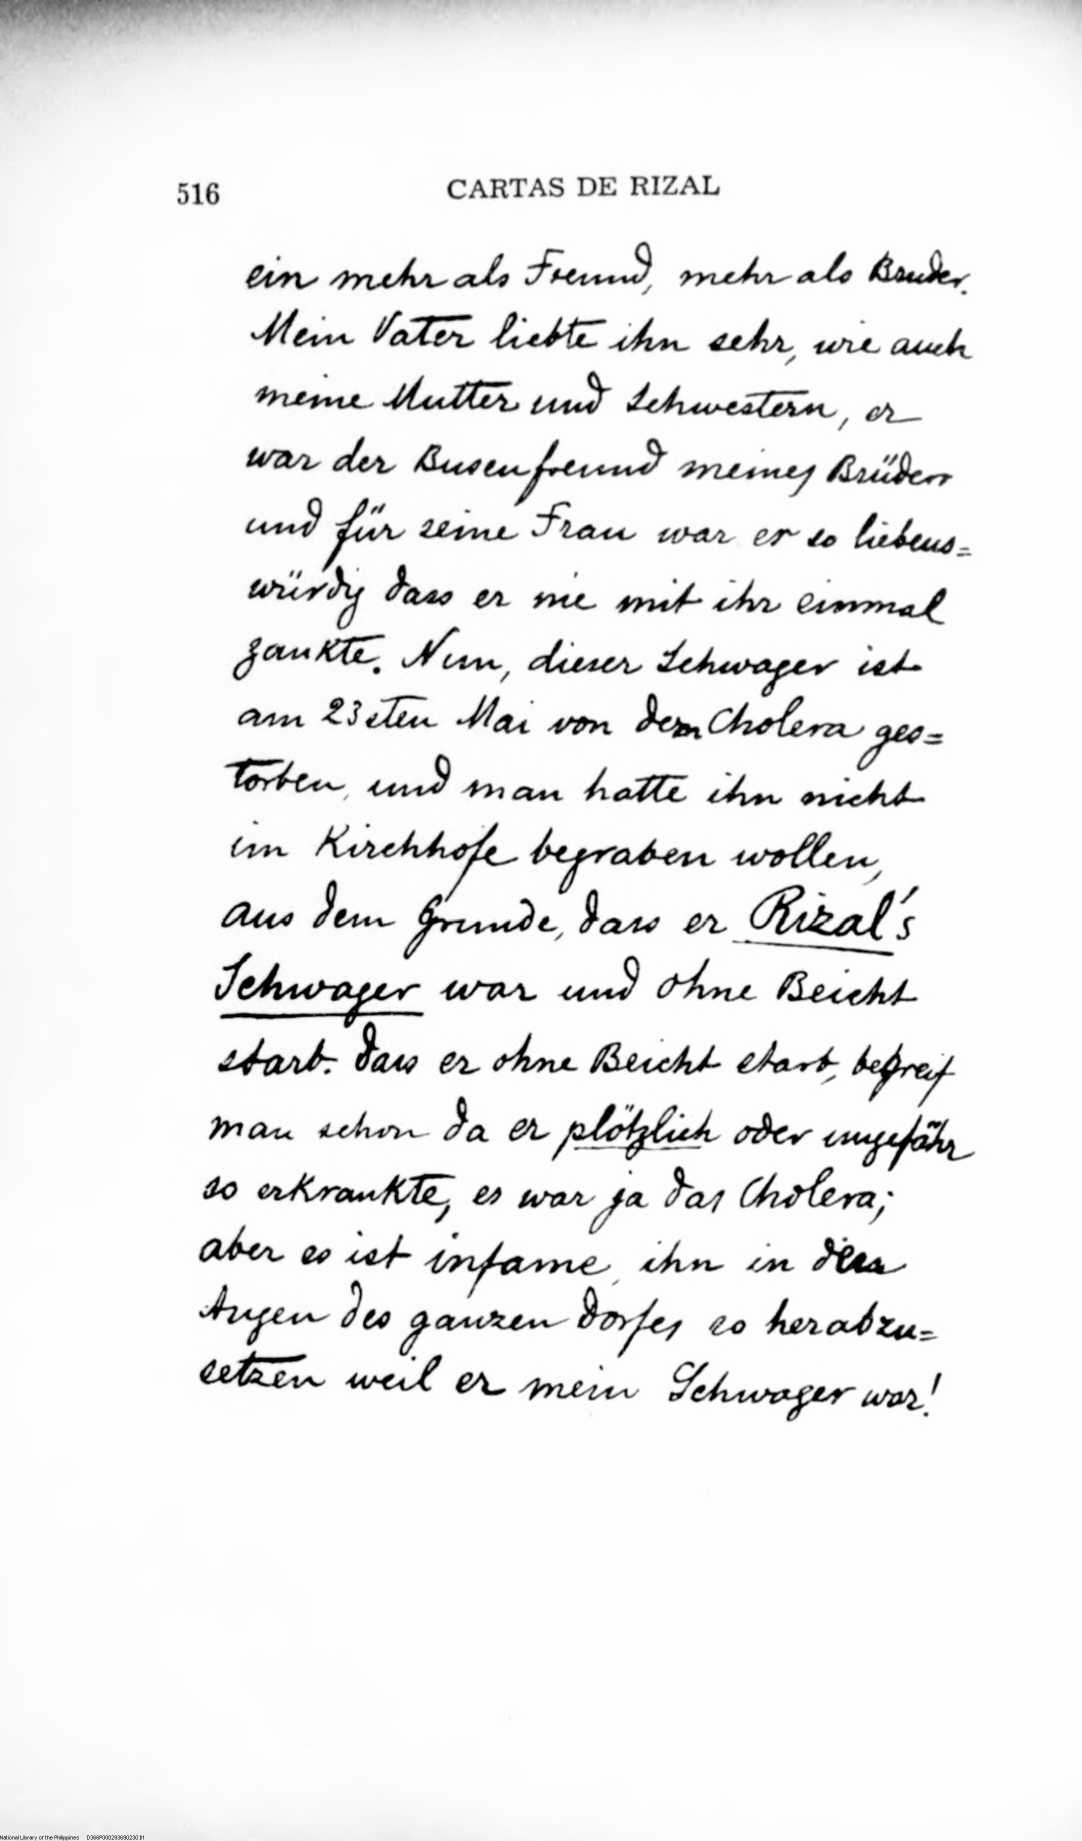 516
CARTAS DE RIZAL
ein mehr als Freund, mehr als Bruder.
Mein Vater liebte ihn sehr, wie auch
meine Mutter und Schwestern, er
war der Busenfreund meines Brüders
und für seine Frau war er so liebens=
würdig dass er nie mit ihr einmal
zankte. Nun, dieser Schwager ist
am 23sten Mai von dem Cholera ges=
torben, und man hatte ihn nicht
im Kirchhofe begraben wollen,
aus dem Grunde, dass er Rizal's
Schwager war und ohne Beicht
starb. Dass er ohne Beicht starb, begreif
man schon da er plötzlich oder ungefähr
so erkrankte, es war ja das Cholera;
aber es ist infame, ihn in den
Augen des ganzen Dorfes so herabzu=
setzen weil er mein Schwager war!
National Library of the Philippines